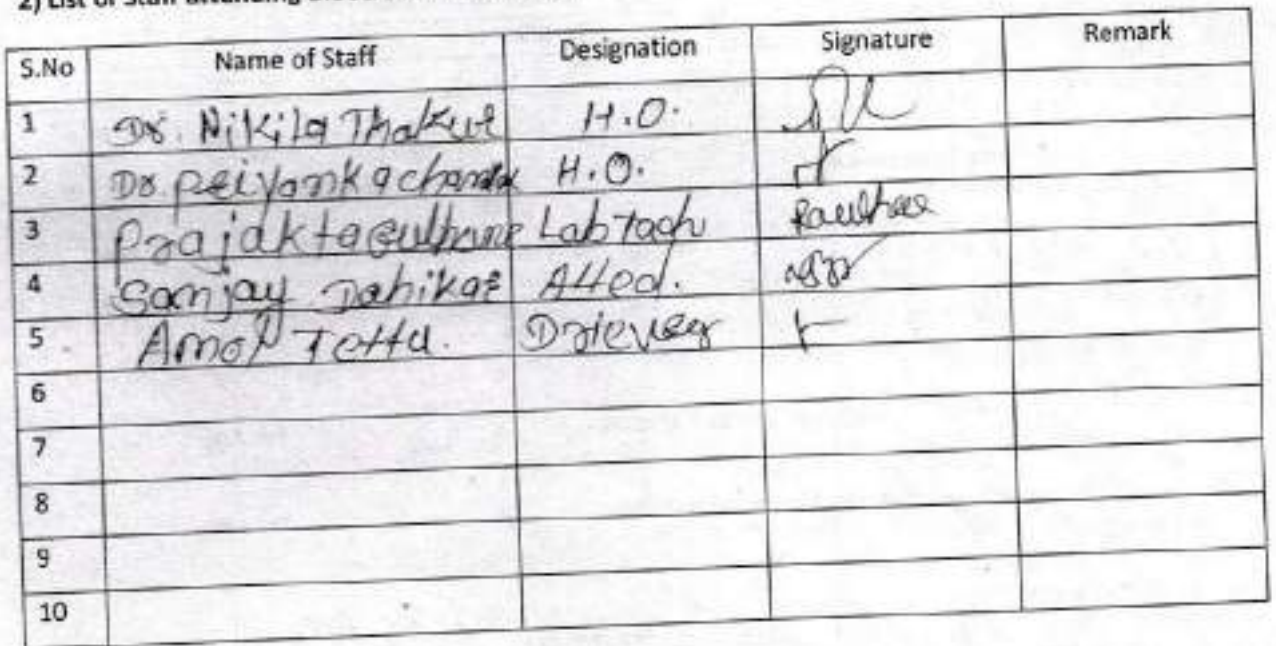 2) List of Staff attending
S.No Name of Staff Designation Signature Remark
1 Dr. Nikila Thakur H.O.
2 Dr. Priyanka H.O.
3 Prajakta Lab Tech
4 Sanjay Dahikar Atted.
5 Amol Tetta. Driever
6
7
8
9
10